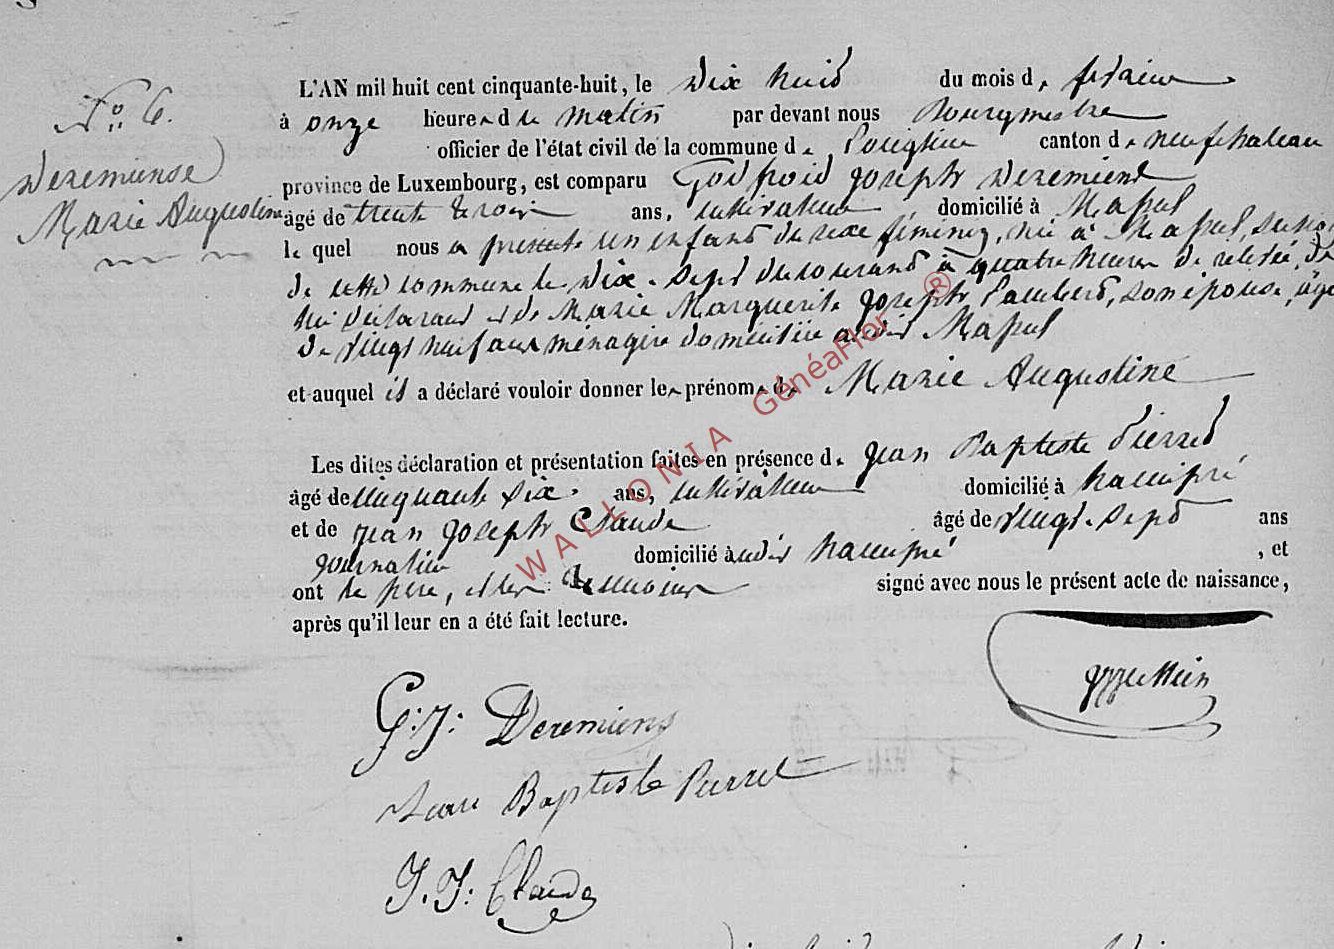 N° 6.
Deremiense
Marie Augustine
L'AN mil huit cent cinquante-huit, le dix huit du mois de février
à onze heures du matin par devant nous Bourgmestre
officier de l'état civil de la commune de canton de neufchateau
province de Luxembourg, est comparu Godfroid joseph Deremiens
âgé de trente trois ans, cultivateur domicilié à Massul
le quel nous a présenté un enfant du sexe féminin, né à Massul,
de cette commune le dix-sept du courant à quatre heures de relevée, de
lui déclarant et de Marie Marguerite joseph Lambert, son épouse, âgée
de vingt neuf ans ménagère domiciliée audit Massul
et auquel il a déclaré vouloir donner les prénoms de Marie Augustine
Les dites déclaration et présentation faites en présence de jean Baptiste Pierret
âgé de cinquante six ans, cultivateur domicilié à hamipré
et de jean joseph Claude âgé de vingt-sept ans
journalier domicilié audit hamipré , et
ont le père, et les témoins signé avec nous le présent acte de naissance,
après qu'il leur en a été fait lecture.
G: J: Deremiens
Jean Baptiste Pierret
J. J: Claude
WALLONIA GénéaFlor ®